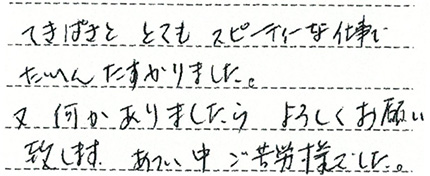 てきぱきと とても スピーディーな仕事で
たいへんたすかりました。
又 何かありましたら よろしくお願い
致します. あつい中 ご苦労様でした。